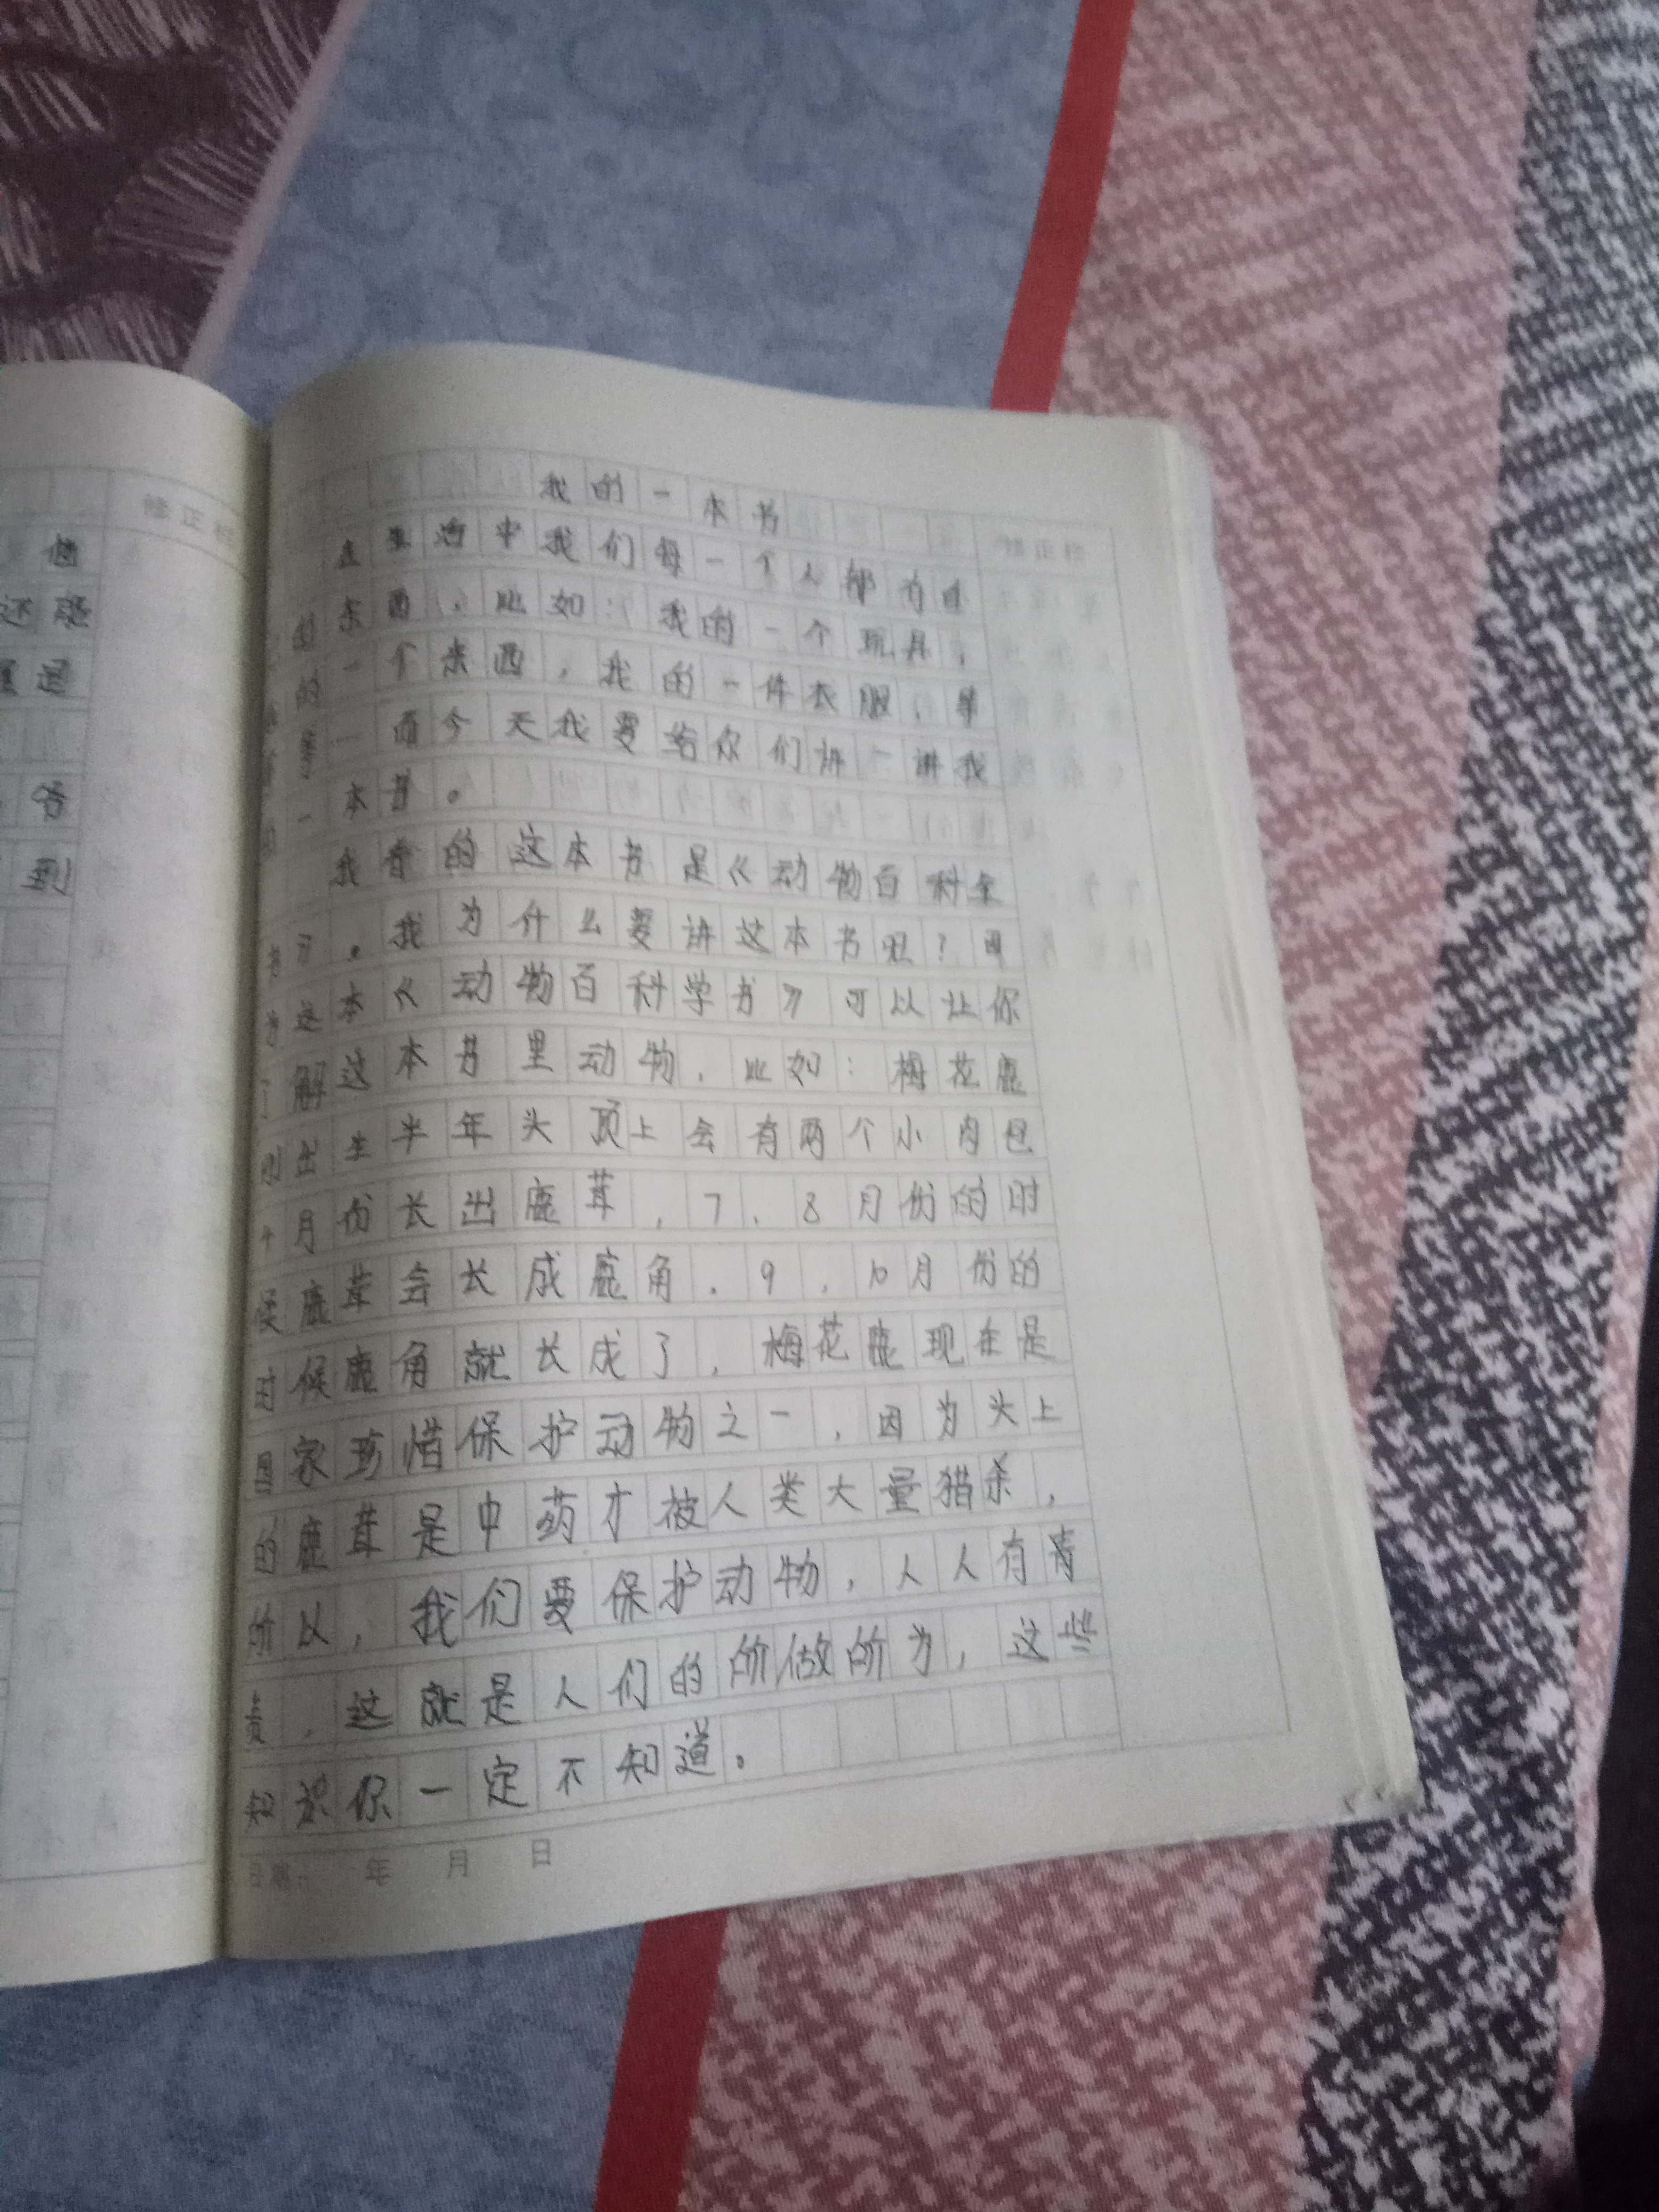 修正栏
他
还
是
答
到
我的一本书
修正栏
在生活中我们每一个人都有自
的东西，比如：我的一个玩具，
的一个东西，我的一件衣服，等
等一而今天我要给众们讲一讲我
一本书。
我看的这本书是《动物百科全
书》。我为什么要讲这本书呢？因
为这本《动物百科学书》可以让你
了解这本书里动物，比如：梅花鹿
刚出生半年头顶上会有两个小肉包
4月份长出鹿茸，7、8月份的时
候鹿茸会长成鹿角，9，10月份的
时候鹿角就长成了，梅花鹿现在是
国家珍惜保护动物之一，因为头上
的鹿茸是中药才被人类大量猎杀，
所以，我们要保护动物，人人有责
责，这就是人们的所做所为，这些
知识你一定不知道。
日期： 年 月 日